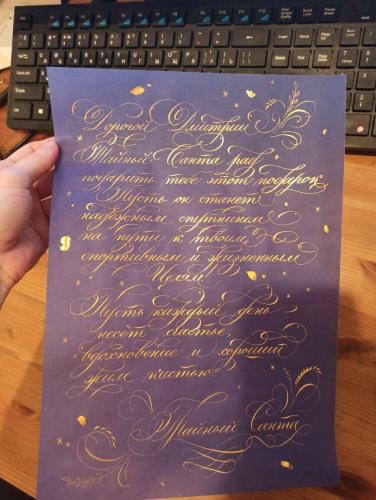 Дорогой Дмитрий
Тайный Санта рад
подарить тебе этот подарок
Пусть он станет
надежным спутником
на пути к твоим
спортивным и жизненным
Целям!
Пусть каждый день
несёт счастье,
вдохновение и хороший
жим лёжа
Тайный Санта